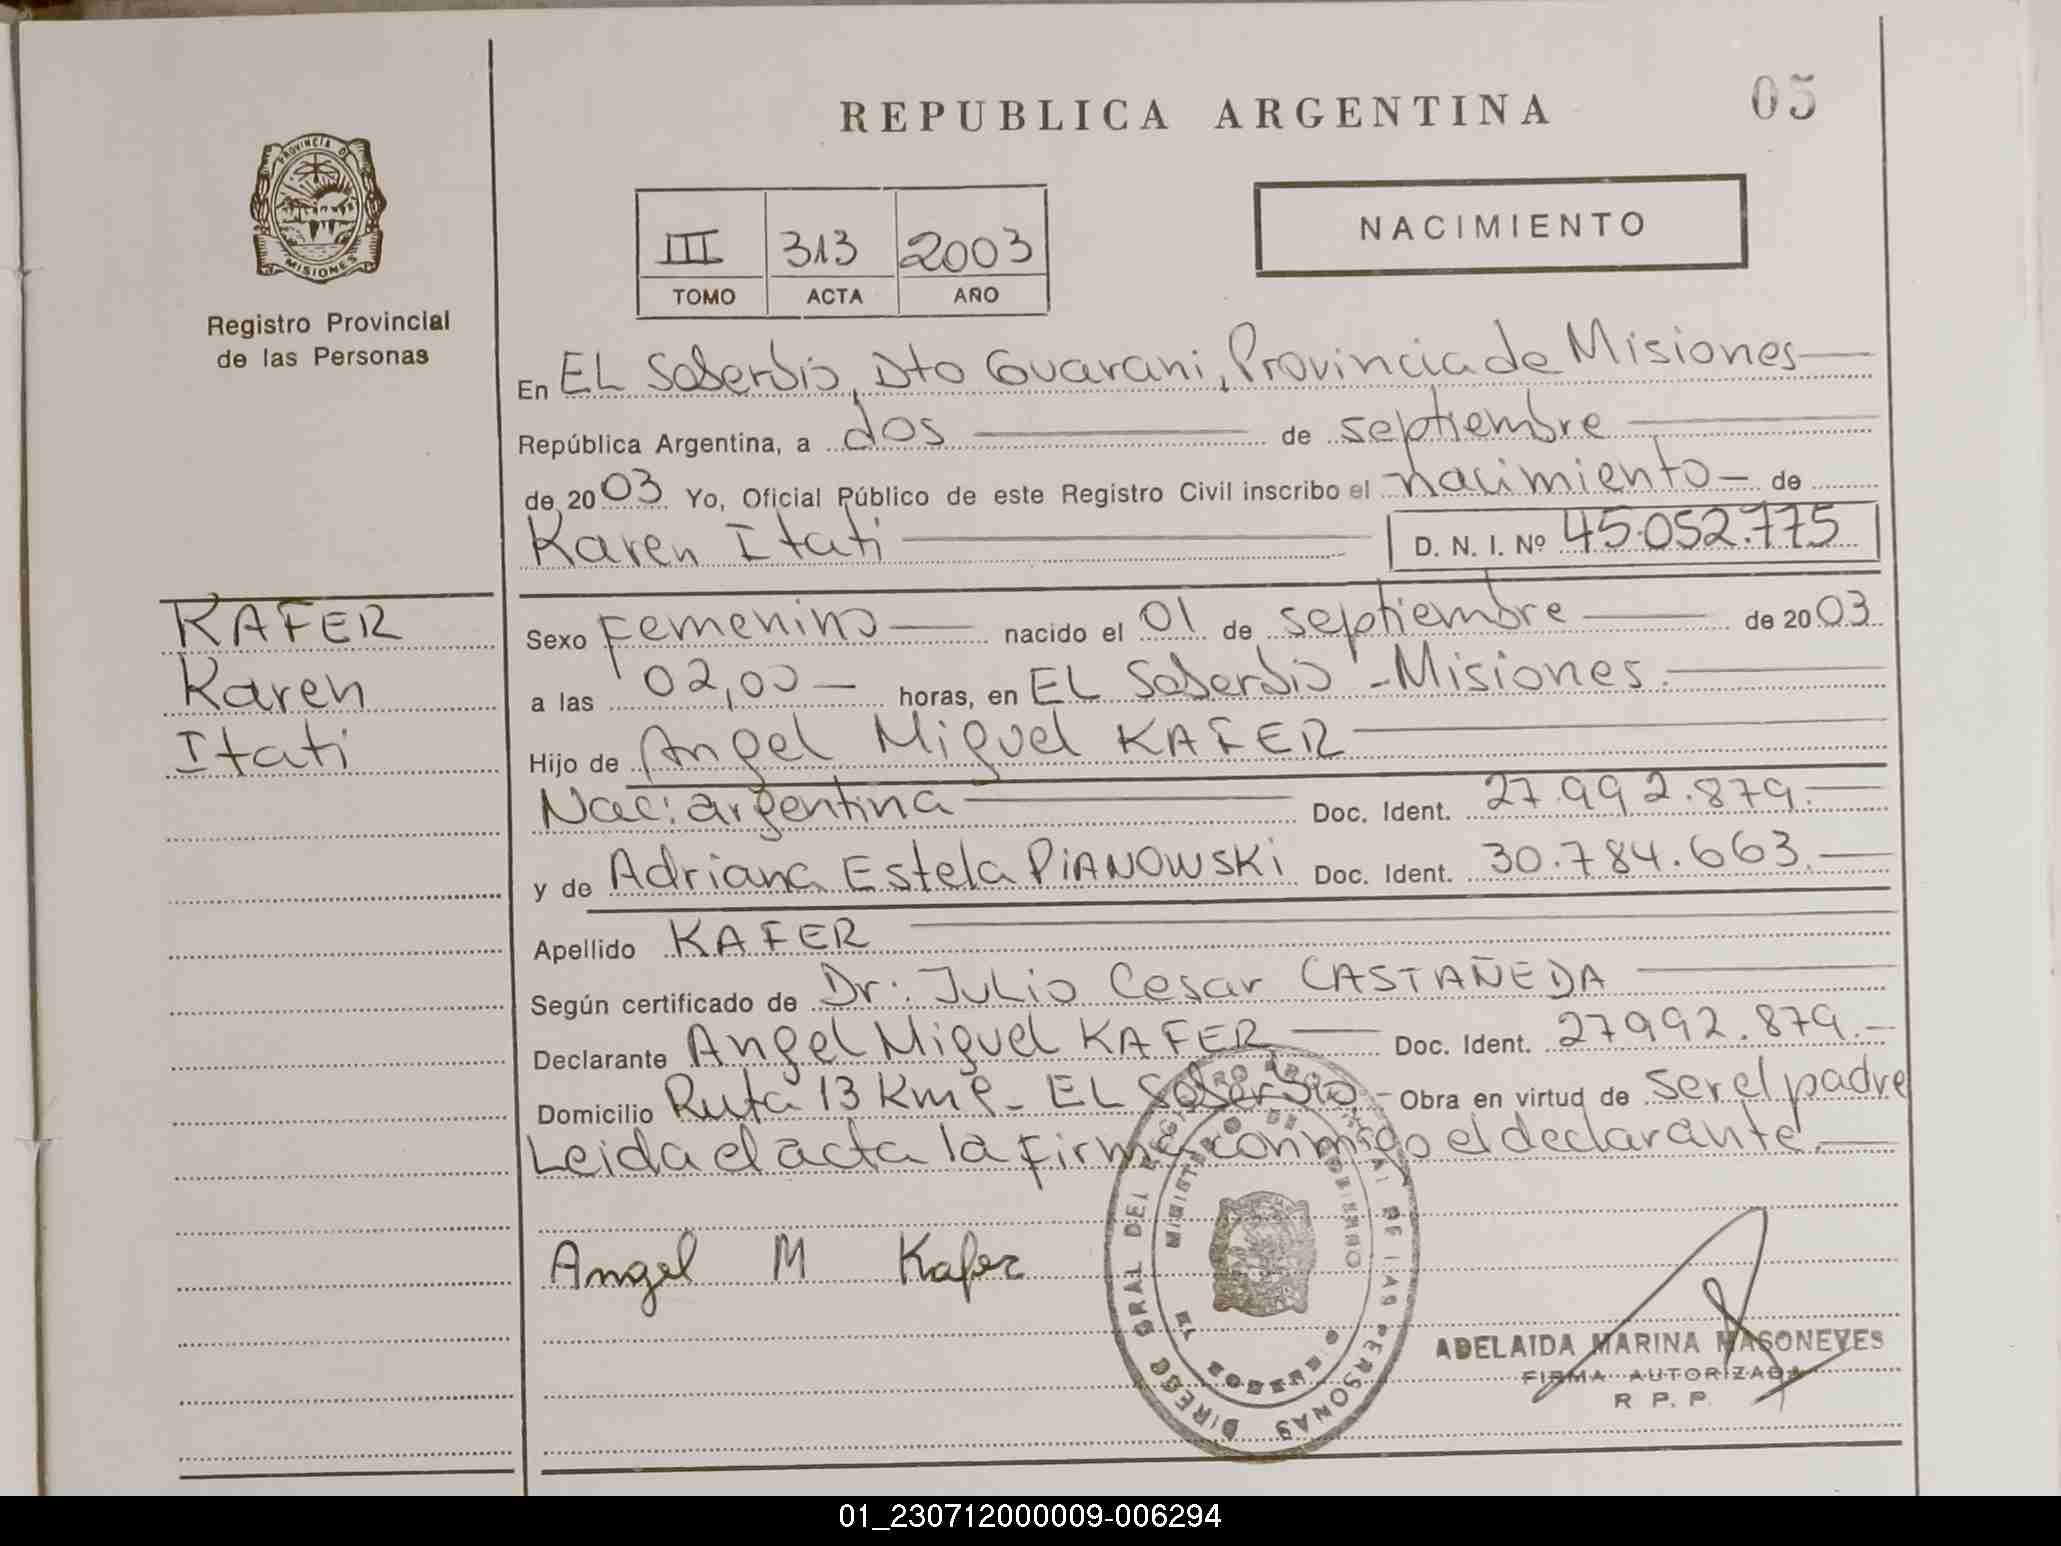 REPUBLICA ARGENTINA
05
PROVINCIA DE
MISIONES
Registro Provincial
de las Personas
III 313 2003
TOMO ACTA AÑO
NACIMIENTO
En EL Soberbio, Dto Guarani, Provincia de Misiones
República Argentina, a dos de septiembre
de 2003 Yo, Oficial Público de este Registro Civil inscribo el nacimiento de
Karen Itati D. N. I. Nº 45.052.775
KAFER
Karen
Itati
Sexo Femenino nacido el 01 de septiembre de 2003
a las 02,00 horas, en EL Soberbio - Misiones.
Hijo de Angel Miguel KAFER
Nac: argentina Doc. Ident. 27.992.879.
y de Adriana Estela PIANOWSKI Doc. Ident. 30.784.663.
Apellido KAFER
Según certificado de Dr: Julio Cesar CASTAÑEDA
Declarante Angel Miguel KAFER Doc. Ident. 27992.879.
Domicilio Ruta 13 Km - EL Soberbio - Obra en virtud de ser el padre
Leida el acta la firma conmigo el declarante.
Angel M Kafer
MINISTERIO DE GOBIERNO
ADELAIDA MARINA MASONEVES
FIRMA AUTORIZADA
R P. P.
01_230712000009-006294